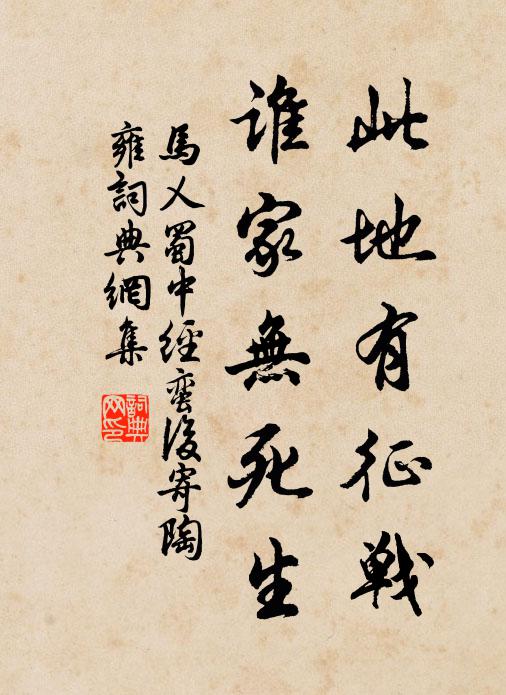 此地有征戰
誰家無死生
馬乂蜀中經蠻後寄陶
雍詞典網集
詞典
网印